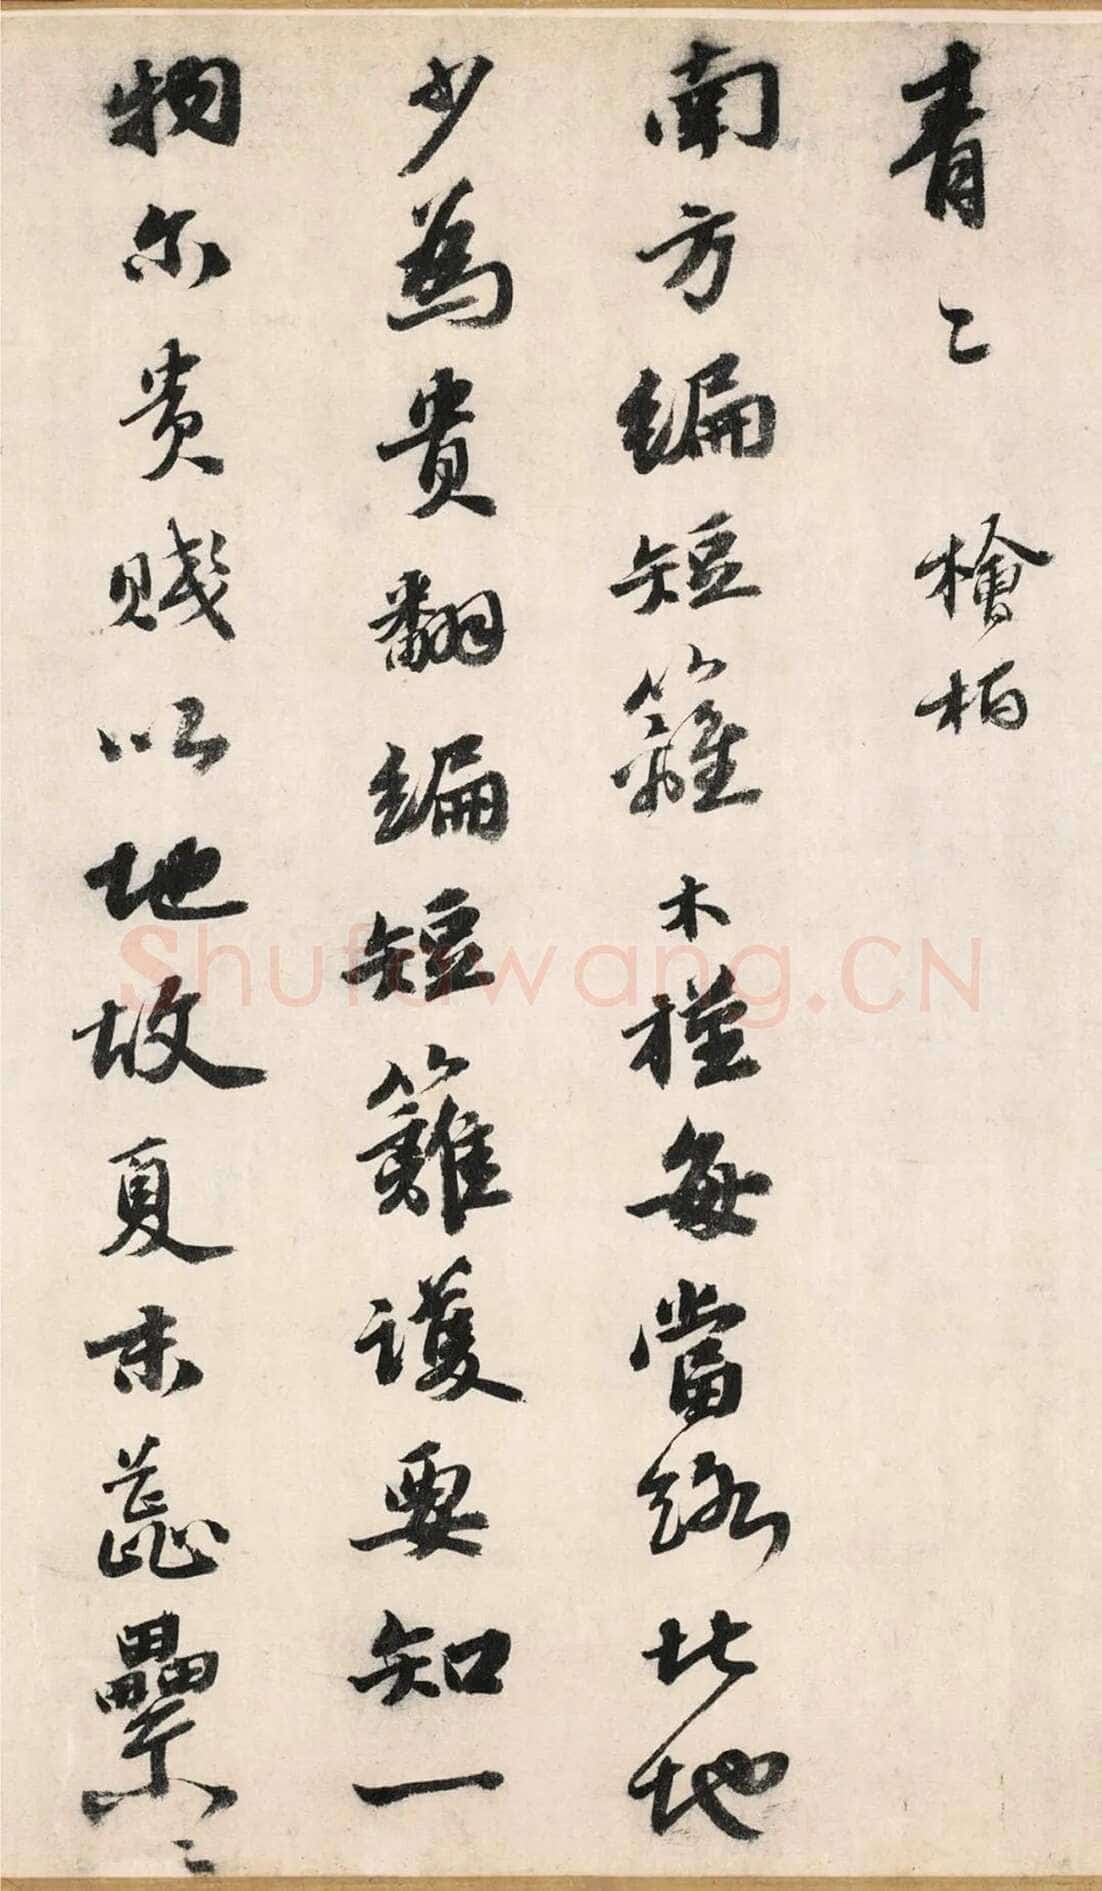 青〻 檜柏
南方編短籬木槿每當路北地
少為貴翻編短籬護要知一
物尔貴賤以地故夏末蕊纍〻
Shufawang.CN